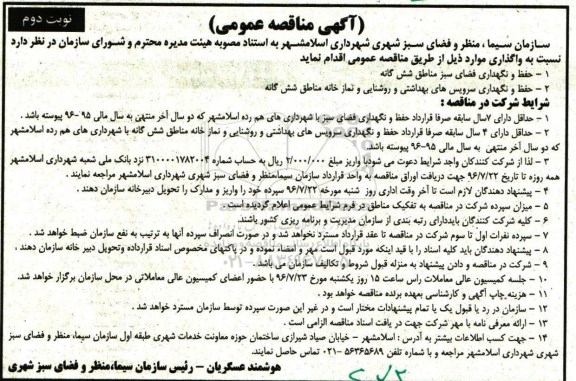 نوبت دوم
(آگهی مناقصه عمومی)
سازمان سیما ، منظر و فضای سبز شهری شهرداری اسلامشهر به استناد مصوبه هیئت مدیره محترم و شورای سازمان در نظر دارد
نسبت به واگذاری موارد ذیل از طریق مناقصه عمومی اقدام نماید
۱ - حفظ و نگهداری فضای سبز مناطق شش گانه
۲ - حفظ و نگهداری سرویس های بهداشتی و روشنایی و نماز خانه مناطق شش گانه
شرایط شرکت در مناقصه :
۱ - حداقل دارای ۷سال سابقه صرفا قرارداد حفظ و نگهداری فضای سبز با شهرداری های هم رده اسلامشهر که دو سال آخر منتهی به سال مالی ۹۵-۹۶ پیوسته باشد .
۲ - حداقل دارای ۴ سال سابقه صرفا قرارداد حفظ و نگهداری سرویس های بهداشتی و روشنایی و نماز خانه مناطق شش گانه با شهرداری های هم رده اسلامشهر
که دو سال آخر منتهی به سال مالی ۹۵-۹۶ پیوسته باشد.
۳ - لذا از شرکت کنندگان واجد شرایط دعوت می شودبا واریز مبلغ ۲/۰۰۰/۰۰۰ ریال به حساب شماره ۳۱۰۰۰۰۱۷۸۲۰۰۴ نزد بانک ملی شعبه شهرداری اسلامشهر
همه روزه تا تاریخ ۹۶/۷/۲۲ جهت دریافت اوراق مناقصه به واحد قرارداد سازمان سیما،منظر و فضای سبز شهری شهرداری اسلامشهر مراجعه نمایند .
۴ - پیشنهاد دهندگان لازم است تا آخر وقت اداری روز شنبه مورخه ۹۶/۷/۲۲ سپرده خود را واریز و مدارک را تحویل دبیرخانه سازمان دهند .
۵ - میزان سپرده شرکت در مناقصه به تفکیک مناطق در فرم شرایط عمومی اعلام گردیده است .
۶ - کلیه شرکت کنندگان بایددارای رتبه بندی از سازمان مدیریت و برنامه ریزی کشور باشند.
۷ - سپرده نفرات اول تا سوم شرکت در مناقصه تا عقد قرارداد مسترد نخواهد شد و در صورت انصراف سپرده آنها به ترتیب به نفع سازمان ضبط خواهد شد .
۸ - پیشنهاد دهندگان باید کلیه اسناد را با قید اینکه مورد قبول است مهر و امضاء نموده و در پاکتهای مخصوص اسناد قرارداده وتحویل دبیر خانه سازمان دهند .
۹ - شرکت در مناقصه و دادن پیشنهاد به منزله قبول شروط و تکالیف سازمان می باشد .
۱۰ - جلسه کمیسیون عالی معاملات راس ساعت ۱۵ روز یکشنبه مورخ ۹۶/۷/۲۳ با حضور اعضای کمیسیون عالی معاملاتی در محل سازمان برگزار خواهد شد.
۱۱ - هزینه چاپ آگهی و کارشناسی بعهده برنده مناقصه خواهد بود .
۱۲ - سازمان در رد یا قبول یک یا تمام پیشنهادات مختار است و در غیر این صورت سپرده توسط سازمان مسترد خواهد شد .
۱۳ - ارائه معرفی نامه با مهر شرکت جهت در یافت اسناد مناقصه الزامی است .
۱۴ - جهت کسب اطلاعات بیشتر به آدرس : اسلامشهر - خیابان صیاد شیرازی ساختمان حوزه معاونت خدمات شهری طبقه اول سازمان سیما، منظر و فضای سبز
شهری شهرداری اسلامشهر مراجعه و با شماره تلفن ۵۶۳۶۵۶۸۹ -۰۲۱ تماس حاصل نمایند.
هوشمند عسکریان – رئیس سازمان سیما،منظر و فضای سبز شهری